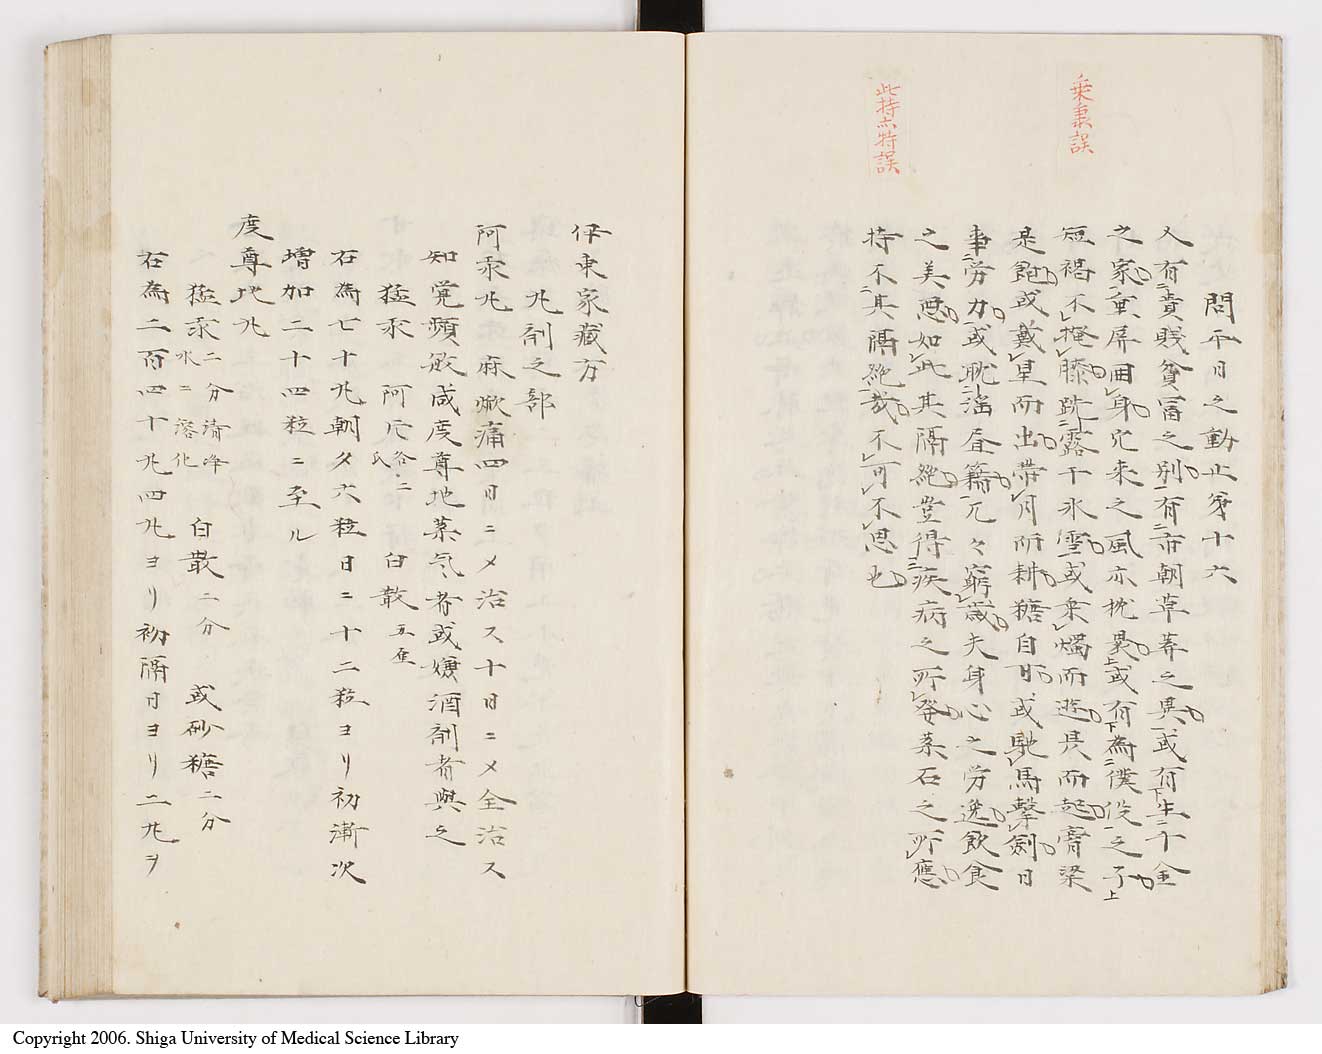 乗秉誤
此持亠特誤
問平日之動止第十六
人有貴賤貧冨之別有市朝草莽之異或有生千金
之家重屏囲身児来之風亦枕裘或有為僕役之子
短褐不掩膝跣露干氷雪或乗燭而遊長而起膏粱
是飽或戴星而出帯月而耕糖自可或馳馬撃劍日
事労力或耽淫昼籍兀々窮歳夫身心之労逸飲食
之美悪如此其隔絶豈得疾病之所発薬石之所應
持不其隔絶哉不可不思也
伊東家藏方
丸剤之部
阿汞丸 麻 痛四日ニメ治ス十日ニメ全治ス
知覚頻敏咸度尊地薬気ヽ者或嫌酒剤者與之
猛汞 阿片各二氏 白散五
右為七十丸朝夕六粒日ニ十二粒ヨリ初漸次
増加二十四粒ニ至ル
度尊地丸
猛汞二分 清浄水ニ溶化 白散二分 或砂糖二分
右為二百四十丸四丸ヨリ初隔日ヨリ二丸ヲ
Copyright 2006. Shiga University of Medical Science Library